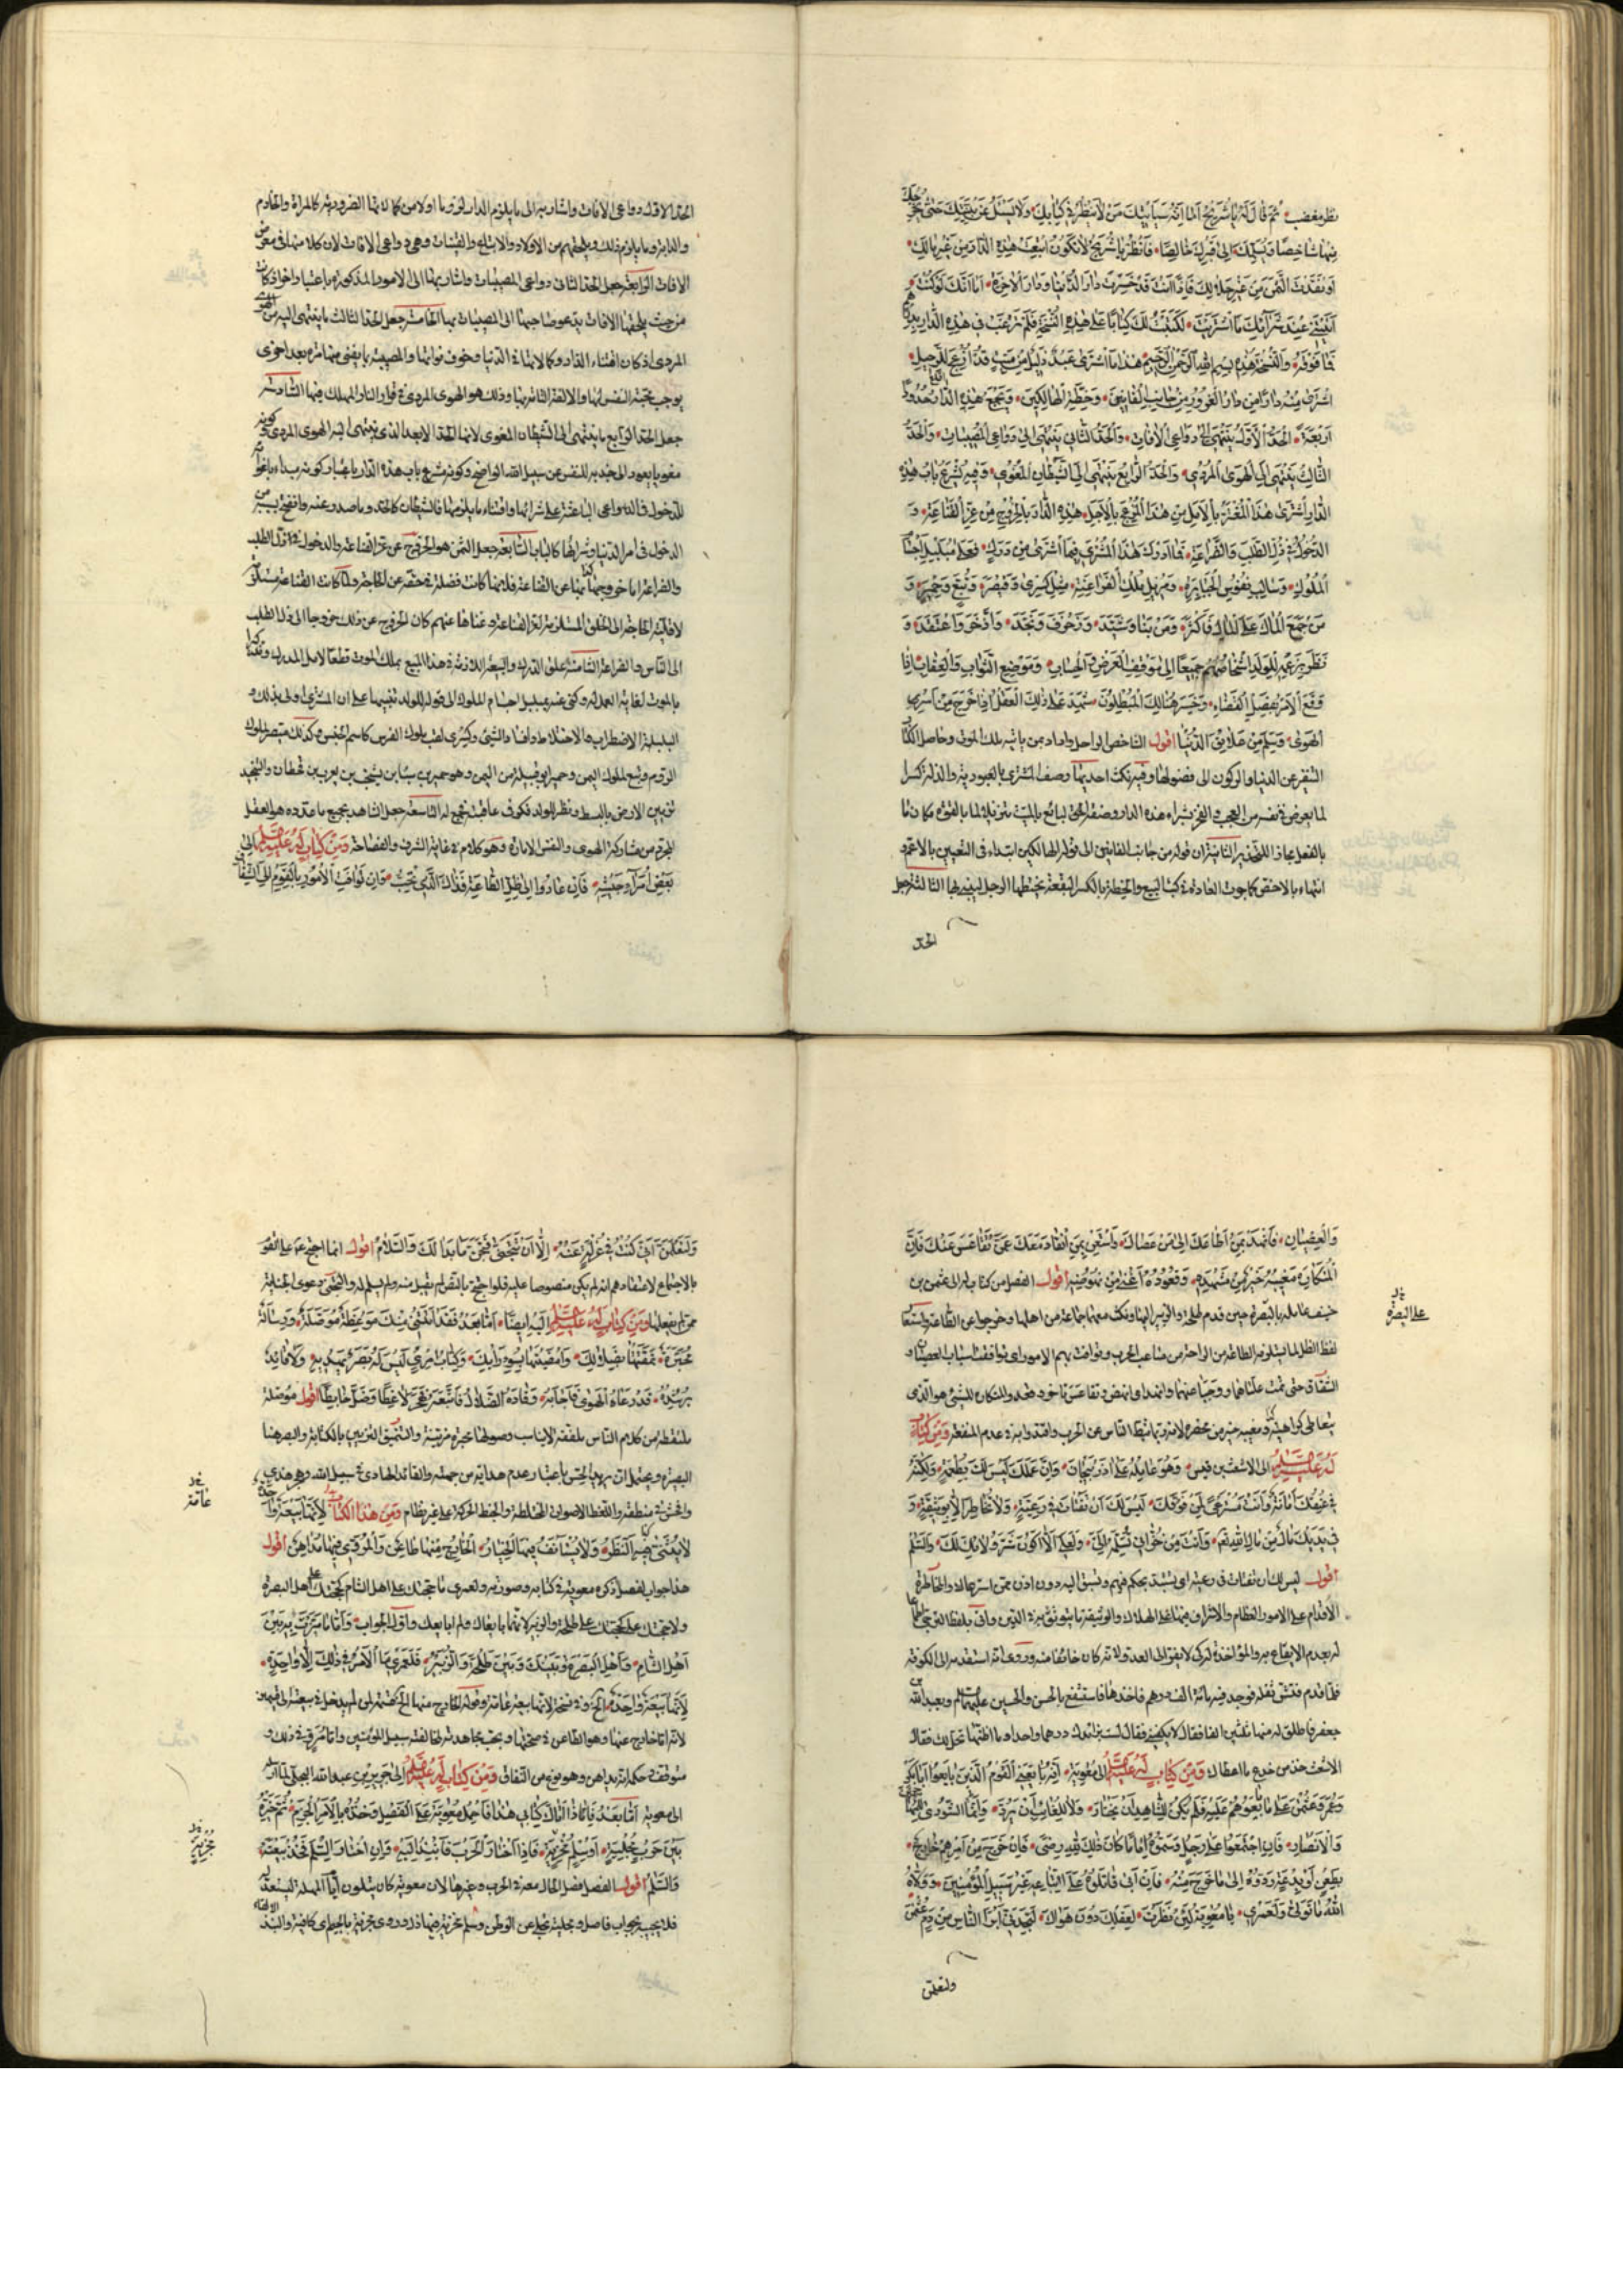 نظر مغضب ثُمَّ قَالَ لَهُ يَا شُرَيْحُ أَمَا إِنَّهُ سَيَأْتِيكَ مَنْ لَا يَنْظُرُ فِي كِتَابِكَ وَلَا يَسْئَلُكَ عَنْ بَيِّنَتِكَ حَتَّى يُخْرِجَكَ
مِنْهَا شَاخِصًا وَيُسَلِّمَكَ إِلَى قَبْرِكَ خَالِصًا فَانْظُرْ يَا شُرَيْحُ لَا تَكُونُ ابْتَعْتَ هَذِهِ الدَّارَ مِنْ غَيْرِ مَالِكَ
أَوْ نَقَدْتَ الثَّمَنَ مِنْ غَيْرِ حَلَالِكَ فَإِذَا أَنْتَ قَدْ خَسِرْتَ دَارَ الدُّنْيَا وَدَارَ الْآخِرَةِ أَمَا إِنَّكَ لَوْ كُنْتَ
أَتَيْتَنِي عِنْدَ شِرَائِكَ مَا اشْتَرَيْتَ لَكَتَبْتُ لَكَ كِتَابًا عَلَى هَذِهِ النُّسْخَةِ فَلَمْ تَرْغَبْ فِي هَذِهِ الدَّارِ بِدِرْهَمٍ
فَمَا فَوْقَهُ وَالنُّسْخَةُ هَذِهِ بِسْمِ اللَّهِ الرَّحْمَنِ الرَّحِيمِ هَذَا مَا اشْتَرَى عَبْدٌ ذَلِيلٌ مِنْ مَيِّتٍ قَدْ أُزْعِجَ لِلرَّحِيلِ
اشْتَرَى مِنْهُ دَارًا مِنْ دَارِ الْغُرُورِ مِنْ جَانِبِ الْفَانِينَ وَخِطَّةِ الْهَالِكِينَ وَتَجْمَعُ هَذِهِ الدَّارَ حُدُودٌ
أَرْبَعَةٌ الْحَدُّ الْأَوَّلُ يَنْتَهِي إِلَى دَوَاعِي الْآفَاتِ وَالْحَدُّ الثَّانِي يَنْتَهِي إِلَى دَوَاعِي الْمُصِيبَاتِ وَالْحَدُّ
الثَّالِثُ يَنْتَهِي إِلَى الْهَوَى الْمُرْدِي وَالْحَدُّ الرَّابِعُ يَنْتَهِي إِلَى الشَّيْطَانِ الْمُغْوِي وَفِيهِ يُشْرَعُ بَابُ هَذِهِ
الدَّارِ اشْتَرَى هَذَا الْمُغْتَرُّ بِالْأَمَلِ مِنْ هَذَا الْمُزْعَجِ بِالْأَجَلِ هَذِهِ الدَّارَ بِالْخُرُوجِ مِنْ عِزِّ الْقَنَاعَةِ وَ
الدُّخُولِ فِي ذُلِّ الطَّلَبِ وَالضَّرَاعَةِ فَمَا أَدْرَكَ هَذَا الْمُشْتَرِي فِيمَا اشْتَرَى مِنْ دَرَكٍ فَعَلَى مُبَلْبِلِ أَجْسَامِ
الْمُلُوكِ وَسَالِبِ نُفُوسِ الْجَبَابِرَةِ وَمُزِيلِ مُلْكِ الْفَرَاعِنَةِ مِثْلِ كِسْرَى وَقَيْصَرَ وَتُبَّعٍ وَحِمْيَرَ وَ
مَنْ جَمَعَ الْمَالَ عَلَى الْمَالِ فَأَكْثَرَ وَمَنْ بَنَا وَشَيَّدَ وَزَخْرَفَ وَنَجَّدَ وَادَّخَرَ وَاعْتَقَدَ وَ
نَظَرَ بِزَعْمِهِ لِلْوَلَدِ إِشْخَاصُهُمْ جَمِيعًا إِلَى مَوْقِفِ الْعَرْضِ وَالْحِسَابِ وَمَوْضِعِ الثَّوَابِ وَالْعِقَابِ إِذَا
وَقَعَ الْأَمْرُ بِفَصْلِ الْقَضَاءِ وَخَسِرَ هُنَالِكَ الْمُبْطِلُونَ شَهِدَ عَلَى ذَلِكَ الْعَقْلُ إِذَا خَرَجَ مِنْ أَسْرِ
الْهَوَى وَسَلِمَ مِنْ عَلَائِقِ الدُّنْيَا اقول الشاخص الراحل واراد بمن ياتيه ملك الموت وحاصل الكتاب
التنفير عن الدنيا والركون الى فضولها وفيه نكت احديها وصف المشترى بالعبودية والذلة كسرا
لما يعرض فى نفسه من العجب والفخر بشراء هذه الدار وصفة البائع بالميت تنزيلا لما بالقوة مكان ما
بالفعل مجازا للتحذير الثانية ان قوله من جانب الفانين الى قوله الهالكين ابتداء فى التعيين بالاعم و
انتهاء بالاخص كما جرت العادة فى كتب البيع والخطة بالكسر البقعة يختطها الرجل ليبنى بها الثالثة جعل
الحد
الحد الاول دواعى الافات واشار به الى ما يلزم الدار
والدابة وما يلزم ذلك ويلحقهم من الاولاد والاتباع والقينات وهى دواعى الافات لان كلا منها فى معرض
الافات الرابعة جعل الحد الثانى دواعى المصيبات واشار بها الى الامور المذكورة باعتبار اخر اذ كانت
من حيث يلحقها الافات يدعو صاحبها الى المصيبات بها الخامسة جعل الحد الثالث ما ينتهى اليه من الهوى
المردى اذ كان اقتناء الدار وكمالاتها فى الدنيا وخوف فواتها والمصيبة بما يفنى منها مرة بعد اخرى
يوجب محبة النفس لها والالفة التامة بها وذلك هو الهوى المردى فى قرار النار المهلك فيها السادسة
جعل الحد الرابع ما ينتهى الى الشيطان المغوى لانها الحد الابعد الذى ينتهى اليه الهوى المردى وكونه
مغويا يعود الى جذبه للنفس عن سبيل الله الواضح وكونه مشرع باب هذه الدار باعتبار كونه مبداء باغوائه
للدخول فالدواعى الباعثة على شرائها واقتناء ما يلزمها فالشيطان كالحد وما صدر عنه وانفتح بسببه من
الدخول فى امر الدنيا وشرائها كالباب السابعة جعل الثمن هو الخروج عن عز القناعة والدخول فى ذل الطلب
والضراعة
لاقلية الحاجة الى الخلق المستلزمة لعز القناعة وغناها عنهم كان الخروج عن ذلك خروجا الى ذل الطلب
الى الناس والضراعة الثامنة علق الدرك والتبعة اللازمة فى هذا المبيع بملك الموت قطعا لامل المدرك
بالموت
البلبلة الاضطراب والاختلاط وافساد الشئ وكسرى لقب ملوك الفرس كاسم الجنس وكذلك قيصر لملوك
الروم وتبع لملوك اليمن وحمير ابو قبيلة من اليمن وهو حمير بن سبا بن يشجب بن يعرب بن قحطان والتنجيد
تزيين الارض بالبسط ونظر للولد فكر فى عاقبة تجمع له التاسعة جعل الشاهد بجميع ما عدده هو العقل
المجرد من مشاركة الهوى والنفس الامارة وهو كلام فى غاية الشرف والفصاحة وَمِنْ كِتَابٍ لَهُ عَلَيْهِ السَّلَامُ إلى
بَعْضِ أُمَرَاءِ جَيْشِهِ فَإِنْ عَادُوا إِلَى ظِلِّ الطَّاعَةِ فَذَاكَ الَّذِي نُحِبُّ وَإِنْ تَوَافَتِ الْأُمُورُ بِالْقَوْمِ إِلَى الشِّقَاقِ
وَالْعِصْيَانِ فَانْهَدْ بِمَنْ أَطَاعَكَ إِلَى مَنْ عَصَاكَ وَاسْتَغْنِ بِمَنِ انْقَادَ مَعَكَ عَمَّنْ تَقَاعَسَ عَنْكَ فَإِنَّ
الْمُتَكَارِهَ مَغِيبُهُ خَيْرٌ مِنْ مَشْهَدِهِ وَقُعُودُهُ أَغْنَى مِنْ نُهُوضِهِ اقول الفصل من كتاب له الى عثمن بن
حنيف عامله بالبصرة حين قدم طلحة والزبير اليها ونكث معهما جماعة من اهلها وخرجوا عن الطاعة واستعار
على البصرة
لفظ الظل لما يستلزمه الطاعة من الراحة من متاعب الحرب وتوافت بهم الامور اى توافقت اسباب العصيان و
الشقاق حتى تمت عللها ووجبا عنها وانهد اى انهض وتقاعس تاخر وقعد والمتكاره للشئ هو الذى
يتعاطى كراهيته ومغيبه خير من محضره لانه ربما يثبط الناس عن الحرب واقتدوا به فى عدم المنفعة وَمِنْ كِتَابٍ
لَهُ عَلَيْهِ السَّلَامُ الى الاشعث بن قيس وَهُوَ عَامِلُهُ عَلَى أَذَرْبِيجَانَ وَإِنَّ عَمَلَكَ لَيْسَ لَكَ بِطُعْمَةٍ وَلَكِنَّهُ
فِي عُنُقِكَ أَمَانَةٌ وَأَنْتَ مُسْتَرْعًى لِمَنْ فَوْقَكَ لَيْسَ لَكَ أَنْ تَفْتَاتَ فِي رَعِيَّةٍ وَلَا تُخَاطِرَ إِلَّا بِوَثِيقَةٍ وَ
فِي يَدَيْكَ مَالٌ مِنْ مَالِ اللَّهِ وَأَنْتَ مِنْ خُزَّانِي حَتَّى تُسَلِّمَهُ إِلَيَّ وَلَعَلِّي أَلَّا أَكُونَ شَرَّ وُلَاتِكَ لَكَ وَالسَّلَامُ
اقول ليس لك ان تفتات فى رعية اى تستبد بحكم فيهم وتسبق اليه دون اذن ممن استرعاك والمخاطرة
الاقدام على الامور العظام والاشراف فيها على الهلاك والوثيقة ما يتوثق به فى الدين واتى بلفظ الترجى
له بعدم الايقاع به والمؤاخذة له كى لا يفر الى العدو لانه كان خائفا منه وروى انه استقدمه الى الكوفة
فلما قدم فتش ثقله فوجد فيه مائة الف درهم فاخذها فاستشفع بالحسن والحسين عليهما السلام وبعبد الله بن
جعفر فاطلق له منها ثلثين الفا فقال لا يكفينى فقال لست بزائدك درهما واحدا وما اظنها تحل لك فقال
الاشعث خذ من خدعك ما اعطاك وَمِنْ كِتَابٍ لَهُ عَلَيْهِ السَّلَامُ إلى مُعَاوِيَةَ إِنَّهُ بَايَعَنِي الْقَوْمُ الَّذِينَ بَايَعُوا أَبَا بَكْرٍ
وَعُمَرَ وَعُثْمَنَ عَلَى مَا بَايَعُوهُمْ عَلَيْهِ فَلَمْ يَكُنْ لِلشَّاهِدِ أَنْ يَخْتَارَ وَلَا لِلْغَائِبِ أَنْ يَرُدَّ وَإِنَّمَا الشُّورَى لِلْمُهَاجِرِينَ
وَالْأَنْصَارِ فَإِنِ اجْتَمَعُوا عَلَى رَجُلٍ وَسَمَّوْهُ إِمَامًا كَانَ ذَلِكَ لِلَّهِ رِضًى فَإِنْ خَرَجَ مِنْ أَمْرِهِمْ خَارِجٌ
بِطَعْنٍ أَوْ بِدْعَةٍ رَدُّوهُ إِلَى مَا خَرَجَ مِنْهُ فَإِنْ أَبَى قَاتَلُوهُ عَلَى اتِّبَاعِهِ غَيْرَ سَبِيلِ الْمُؤْمِنِينَ وَوَلَّاهُ
اللَّهُ مَا تَوَلَّى وَلَعَمْرِي يَا مُعَاوِيَةُ لَئِنْ نَظَرْتَ بِعَقْلِكَ دُونَ هَوَاكَ لَتَجِدَنِّي أَبْرَأَ النَّاسِ مِنْ دَمِ عُثْمَنَ
ولتعلمن
وَلَتَعْلَمَنَّ أَنِّي كُنْتُ فِي عُزْلَةٍ عَنْهُ إِلَّا أَنْ تَتَجَنَّى فَتَجَنَّ مَا بَدَا لَكَ وَالسَّلَامُ اقول انما احتج عليه السلام على القوم
بالاجماع لاعتقادهم انه لم يكن منصوصا عليه فلو احتج بالنص لم يقبل منه ولم يسلم له والتجنى دعوى الجناية
ممن لم يفعلها وَمِنْ كِتَابٍ لَهُ عَلَيْهِ السَّلَامُ إليه ايضًا أَمَّا بَعْدُ فَقَدْ أَتَتْنِي مِنْكَ مَوْعِظَةٌ مُوَصَّلَةٌ وَرِسَالَةٌ
مُحَبَّرَةٌ نَمَّقْتَهَا بِضَلَالِكَ وَأَمْضَيْتَهَا بِسُوءِ رَأْيِكَ وَكِتَابُ امْرِئٍ لَيْسَ لَهُ بَصَرٌ يَهْدِيهِ وَلَا قَائِدٌ
يُرْشِدُهُ قَدْ دَعَاهُ الْهَوَى فَأَجَابَهُ وَقَادَهُ الضَّلَالُ فَاتَّبَعَهُ فَهَجَرَ لَاغِطًا وَضَلَّ خَابِطًا اقول موصلة
ملتقطة من كلام الناس ملفقة لا يناسب وصولها محبرة مزينة والتنميق التزيين بالكتابة والبصر هنا
البصيرة ويحتمل ان يريد الحس باعتبار عدم هدايته من جهته والقائد الهادى فى سبيل الله وهجر هذى
وافحش فى منطقه واللغط الاصوات المختلطة والخبط الحركة على غير نظام وَمِنْ هَذَا الْكِتَابِ لِأَنَّهَا بَيْعَةٌ وَاحِدَةٌ
عامة
لَا يُثَنَّى فِيهَا النَّظَرُ وَلَا يُسْتَأْنَفُ فِيهَا الْخِيَارُ الْخَارِجُ مِنْهَا طَاعِنٌ وَالْمُرَوِّي فِيهَا مُدَاهِنٌ اقول
هذا جواب لفصل ذكره معوية فى كتابه وصورته ولعمرى ما حجتك على اهل الشام كحجتك على اهل البصرة
ولا حجتك على كحجتك على طلحة والزبير لانهما بايعاك ولم ابايعك واول الجواب وَأَمَّا مَا مَيَّزْتَ بِهِ بَيْنَ
أَهْلِ الشَّامِ وَأَهْلِ الْبَصْرَةِ وَبَيْنَكَ وَبَيْنَ طَلْحَةَ وَالزُّبَيْرِ فَلَعَمْرِي مَا الْأَمْرُ فِي ذَلِكَ إِلَّا وَاحِدٌ
لِأَنَّهَا بَيْعَةٌ وَاحِدَةٌ الخ وفى نسخة لانها بيعة عامة
لانه اما خارج عنها وهو الطاعن فى صحتها ويجب مجاهدته لمخالفته سبيل المؤمنين واما مروى فى ذلك و
متوقف وحكمه انه مداهن وهو نوع من النفاق وَمِنْ كِتَابٍ لَهُ عَلَيْهِ السَّلَامُ إلى جرير بن عبد الله البجلى لما ارسله
الى معوية أَمَّا بَعْدُ فَإِذَا أَتَاكَ كِتَابِي هَذَا فَاحْمِلْ مُعَاوِيَةَ عَلَى الْفَصْلِ وَخُذْهُ بِالْأَمْرِ الْجَزْمِ ثُمَّ خَيِّرْهُ
بَيْنَ حَرْبٍ مُجْلِيَةٍ أَوْ سِلْمٍ مُخْزِيَةٍ فَإِذَا اخْتَارَ الْحَرْبَ فَانْبِذْ إِلَيْهِ وَإِنِ اخْتَارَ السِّلْمَ فَخُذْ بَيْعَتَهُ
مُجْزِيَةٍ
وَالسَّلَامُ اقول الفصل فصل الحال معه فى الحرب وغيرها لان معوية كان يتلون ايام المهلة ليستعد
فلا يجيب بجواب فاصل ومجلية تجلى عن الوطن وسلم مخزية فيها ذل وروى مجزية بالجيم اى كافية والنبذ